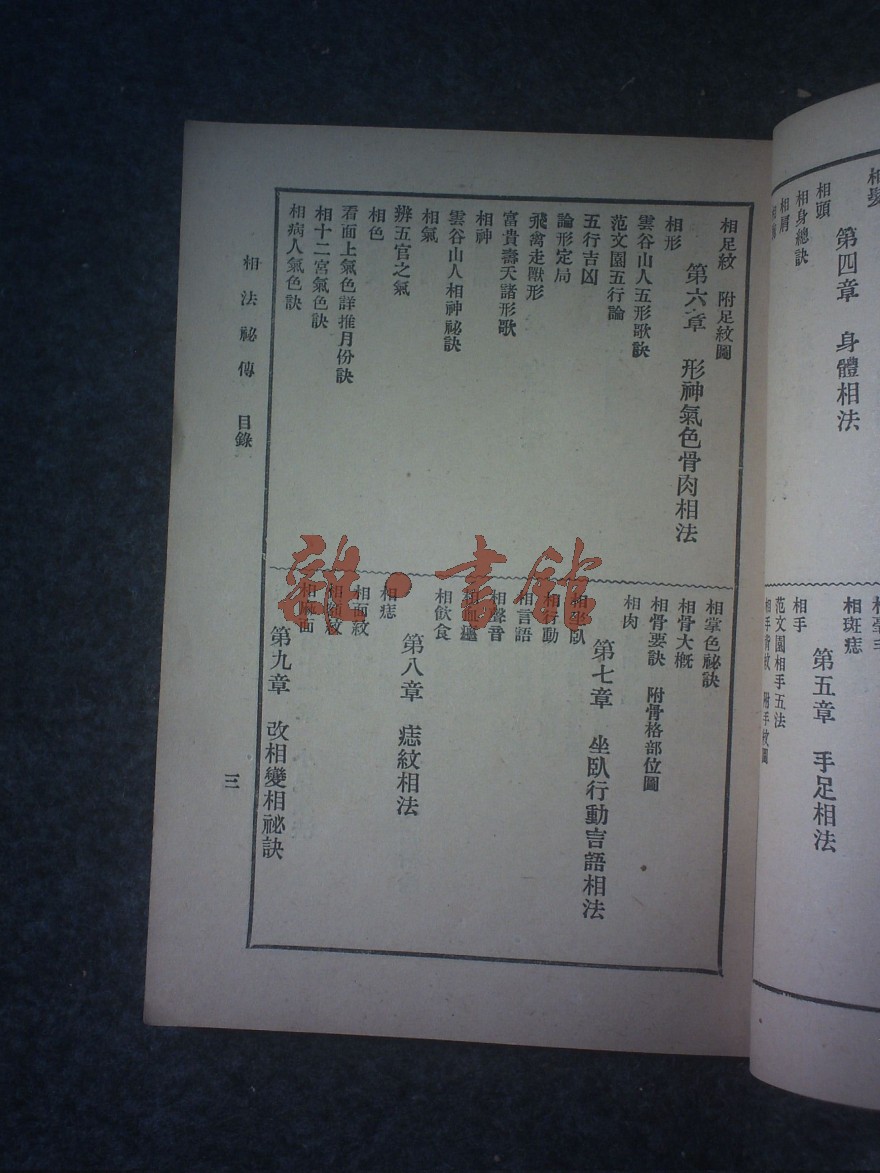 第四章　身體相法
相頭
相身總訣
相肩
相斑痣
第五章　手足相法
相手
范文園相手五法
相足紋　附足紋圖
第六章　形神氣色骨肉相法
相形
雲谷山人五形歌訣
范文園五行論
五行吉凶
論形定局
飛禽走獸形
富貴壽夭諸形歌
相神
雲谷山人相神祕訣
相氣
辨五官之氣
相色
看面上氣色詳推月份訣
相十二宮氣色訣
相病人氣色訣
相掌色祕訣
相骨大概
相骨要訣　附骨格部位圖
相肉
第七章　坐臥行動言語相法
相坐臥
相行動
相言語
相聲音
相飲食
第八章　痣紋相法
相痣
相面紋
相額紋
相麻面
第九章　改相變相祕訣
相法祕傳　目錄
三
雜·書館